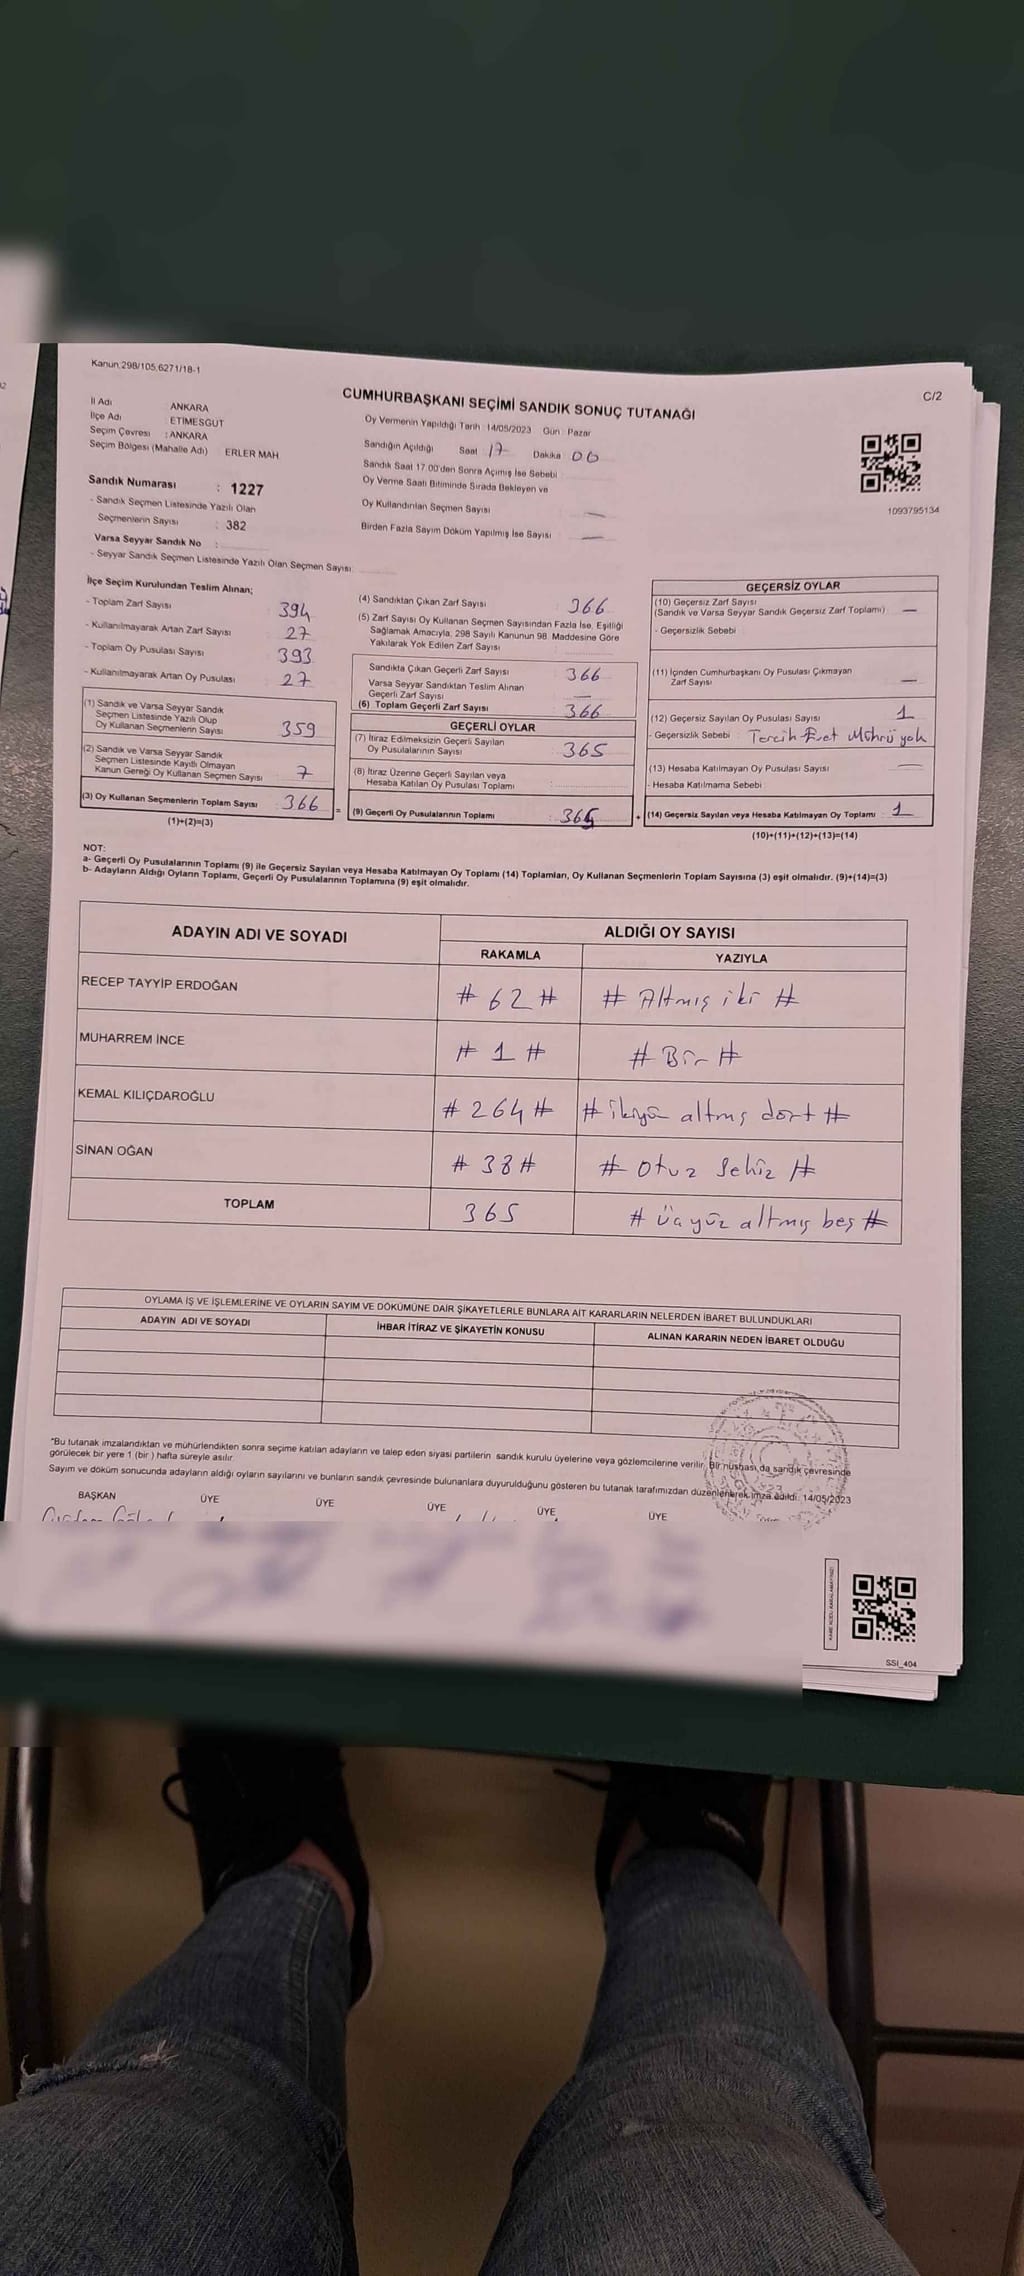 Kanun:298/105,6271/18-1
C/2
CUMHURBAŞKANI SEÇİMİ SANDIK SONUÇ TUTANAĞI
İl Adı ANKARA
İlçe Adı : ETİMESGUT
Seçim Çevresi : ANKARA
Seçim Bölgesi (Mahalle Adı) ERLER MAH
Sandık Numarası : 1227
- Sandık Seçmen Listesinde Yazılı Olan
Seçmenlerin Sayısı : 382
Varsa Seyyar Sandık No :
- Seyyar Sandık Seçmen Listesinde Yazılı Olan Seçmen Sayısı:
Oy Vermenin Yapıldığı Tarih : 14/05/2023 Gün : Pazar
Sandığın Açıldığı Saat 17 Dakika 00
Sandık Saat 17.00'den Sonra Açımış İse Sebebi :
Oy Verme Saati Bitiminde Sırada Bekleyen ve
Oy Kullandırılan Seçmen Sayısı —
Birden Fazla Sayım Döküm Yapılmış İse Sayısı —
1093795134
İlçe Seçim Kurulundan Teslim Alınan;
- Toplam Zarf Sayısı : 394
- Kullanılmayarak Artan Zarf Sayısı : 27
- Toplam Oy Pusulası Sayısı : 393
- Kullanılmayarak Artan Oy Pusulası : 27
(1) Sandık ve Varsa Seyyar Sandık
Seçmen Listesinde Yazılı Olup
Oy Kullanan Seçmenlerin Sayısı : 359
(2) Sandık ve Varsa Seyyar Sandık
Seçmen Listesinde Kayıtlı Olmayan
Kanun Gereği Oy Kullanan Seçmen Sayısı : 7
(3) Oy Kullanan Seçmenlerin Toplam Sayısı : 366 =
(1)+(2)=(3)
(4) Sandıktan Çıkan Zarf Sayısı : 366
(5) Zarf Sayısı Oy Kullanan Seçmen Sayısından Fazla İse, Eşitliği
Sağlamak Amacıyla, 298 Sayılı Kanunun 98. Maddesine Göre
Yakılarak Yok Edilen Zarf Sayısı :
Sandıkta Çıkan Geçerli Zarf Sayısı : 366
Varsa Seyyar Sandıktan Teslim Alınan
Geçerli Zarf Sayısı : —
(6) Toplam Geçerli Zarf Sayısı : 366
GEÇERLİ OYLAR
(7) İtiraz Edilmeksizin Geçerli Sayılan
Oy Pusulalarının Sayısı : 365
(8) İtiraz Üzerine Geçerli Sayılan veya
Hesaba Katılan Oy Pusulası Toplamı :
(9) Geçerli Oy Pusulalarının Toplamı : 365 +
GEÇERSİZ OYLAR
(10) Geçersiz Zarf Sayısı
(Sandık ve Varsa Seyyar Sandık Geçersiz Zarf Toplamı) : —
- Geçersizlik Sebebi :
(11) İçinden Cumhurbaşkanı Oy Pusulası Çıkmayan
Zarf Sayısı : —
(12) Geçersiz Sayılan Oy Pusulası Sayısı : 1
- Geçersizlik Sebebi : Tercih Evet Mührü yok
(13) Hesaba Katılmayan Oy Pusulası Sayısı : —
- Hesaba Katılmama Sebebi :
(14) Geçersiz Sayılan veya Hesaba Katılmayan Oy Toplamı : 1
(10)+(11)+(12)+(13)=(14)
NOT:
a- Geçerli Oy Pusulalarının Toplamı (9) ile Geçersiz Sayılan veya Hesaba Katılmayan Oy Toplamı (14) Toplamları, Oy Kullanan Seçmenlerin Toplam Sayısına (3) eşit olmalıdır. (9)+(14)=(3)
b- Adayların Aldığı Oyların Toplamı, Geçerli Oy Pusulalarının Toplamına (9) eşit olmalıdır.
ADAYIN ADI VE SOYADI ALDIĞI OY SAYISI
RAKAMLA YAZIYLA
RECEP TAYYİP ERDOĞAN # 62 # # Altmış iki #
MUHARREM İNCE # 1 # # Bir #
KEMAL KILIÇDAROĞLU # 264 # # ikiyüz altmış dört #
SİNAN OĞAN # 38 # # Otuz Sekiz #
TOPLAM 365 # üçyüz altmış beş #
OYLAMA İŞ VE İŞLEMLERİNE VE OYLARIN SAYIM VE DÖKÜMÜNE DAİR ŞİKAYETLERLE BUNLARA AİT KARARLARIN NELERDEN İBARET BULUNDUKLARI
ADAYIN ADI VE SOYADI İHBAR İTİRAZ VE ŞİKAYETİN KONUSU ALINAN KARARIN NEDEN İBARET OLDUĞU
*Bu tutanak imzalandıktan ve mühürlendikten sonra seçime katılan adayların ve talep eden siyasi partilerin sandık kurulu üyelerine veya gözlemcilerine verilir. Bir nüshası da sandık çevresinde
görülecek bir yere 1 (bir ) hafta süreyle asılır.
Sayım ve döküm sonucunda adayların aldığı oyların sayılarını ve bunların sandık çevresinde bulunanlara duyurulduğunu gösteren bu tutanak tarafımızdan düzenlenerek imza edildi. 14/05/2023
BAŞKAN ÜYE ÜYE ÜYE ÜYE ÜYE
SSI_404